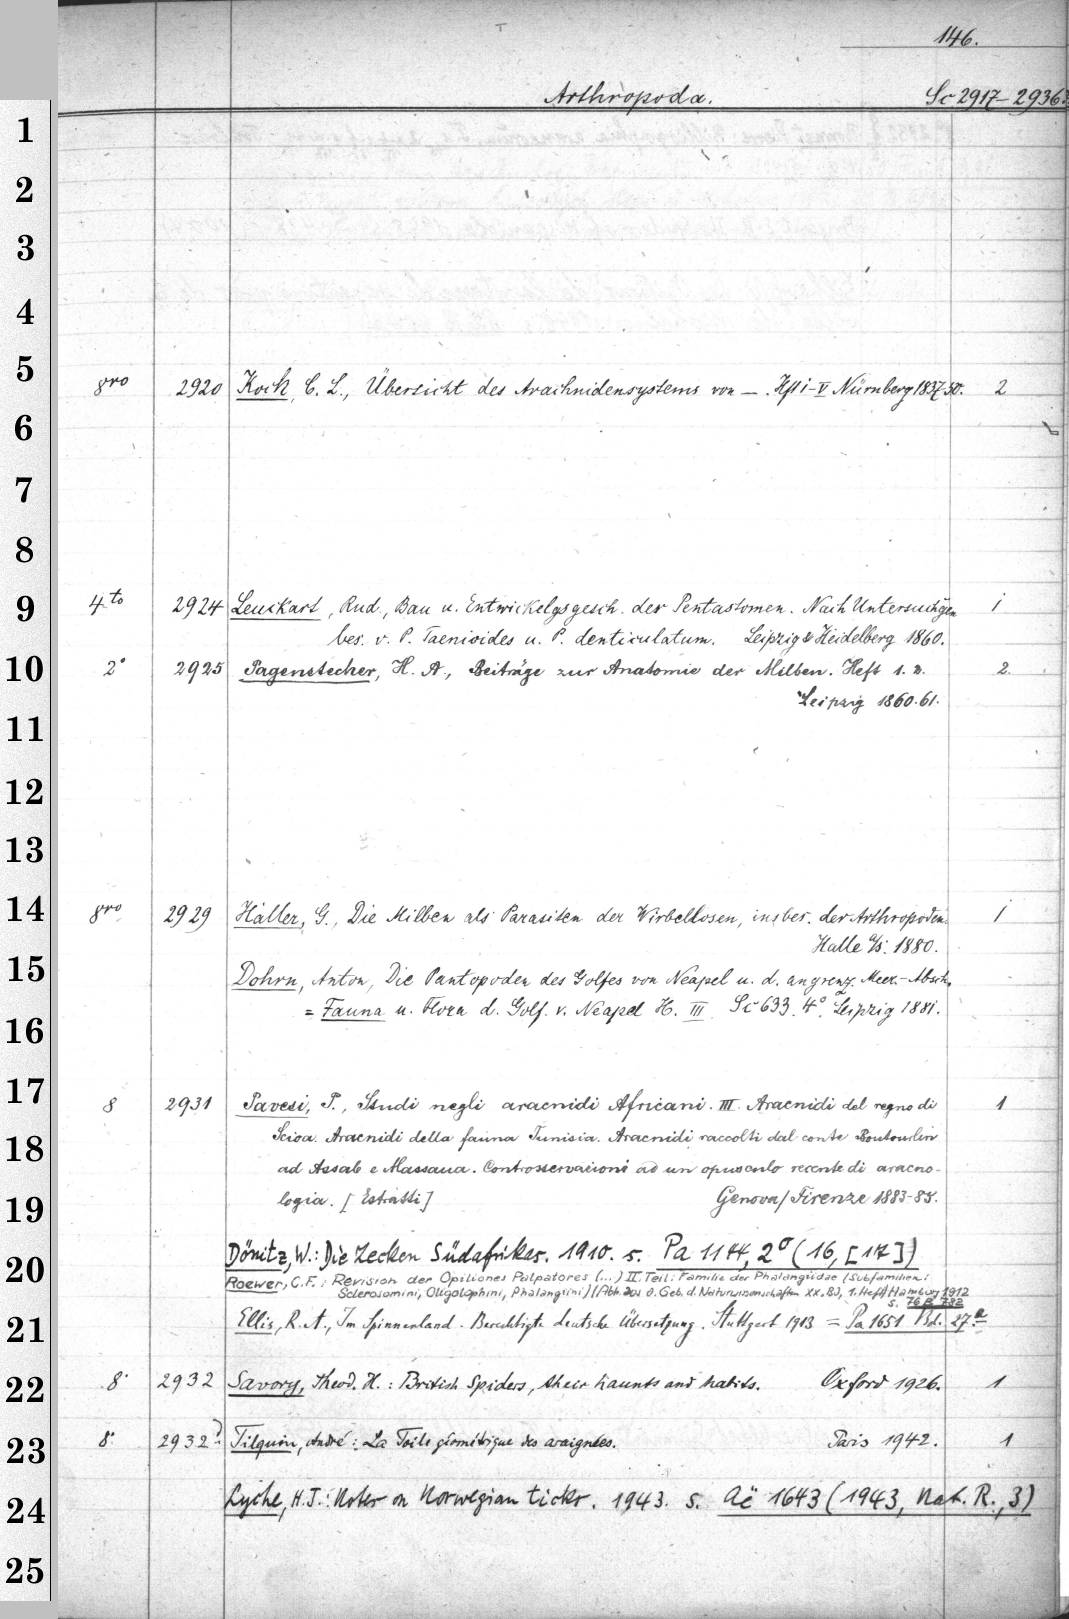 146.
Arthropoda. Sc 2917-2936
1
2
3
4
5
8ro 2920 Koch, C. L., Übersicht des Arachnidensystems von —. Hft i-V Nürnberg 1837-50. 2
6
7
8
9
4to 2924 Leuckart, Rud., Bau u. Entwickelgsgesch. der Pentastomen. Nach Untersuchgen i
bes. v. P. Taenioides u. P. denticulatum. Leipzig & Heidelberg 1860.
10
2° 2925 Pagenstecher, H. A., Beiträge zur Anatomie der Milben. Heft 1. 2. 2.
Leipzig 1860.61.
11
12
13
14
8ro 2929 Haller, G., Die Milben als Parasiten der Wirbellosen, insbes. der Arthropoden. i
Halle a/S. 1880.
15
Dohrn, Anton, Die Pantopoden des Golfes von Neapel u. d. angrenz. Meer.-Absch.
= Fauna u. Flora d. Golf. v. Neapel H. III Sc 633. 4°. Leipzig 1881.
16
17
8 2931 Pavesi, P., Studi negli aracnidi Africani. III. Aracnidi del regno di 1
18
Scioa. Aracnidi della fauna Tunisia. Aracnidi raccolti dal conte Boutourlin
ad Assab e Massaua. Controsservazioni ad un opuscolo recente di aracno-
19
logia. [Estratti] Genova/Firenze 1883-85.
20
Dönitz, W.: Die Zecken Südafrikas. 1910. s. Pa 1144, 2° (16, [17])
Roewer, C.F.: Revision der Opiliones Palpatores (...) II. Teil: Familie der Phalangiidae (Subfamilien:
Sclerosomini, Oligolophini, Phalangiini) (Abh. aus d. Geb. d. Naturwissenschaften XX. Bd, 1. Heft) Hamburg 1912
s. 76 B 782
21
Ellis, R. A., Im Spinnenland. Berechtigte deutsche Übersetzung. Stuttgart 1913 = Pa 1651 Bd. 27.a
22
8° 2932 Savory, Theod. H.: British Spiders, their haunts and habits. Oxford 1926. 1
23
8° 2932 Tilquin, André: La Toile géométrique des araignées. Paris 1942. 1
24
Lyche, H.T.: Notes on Norwegian ticks. 1943. s. Aë 1643 (1943, Nat. R., 3)
25